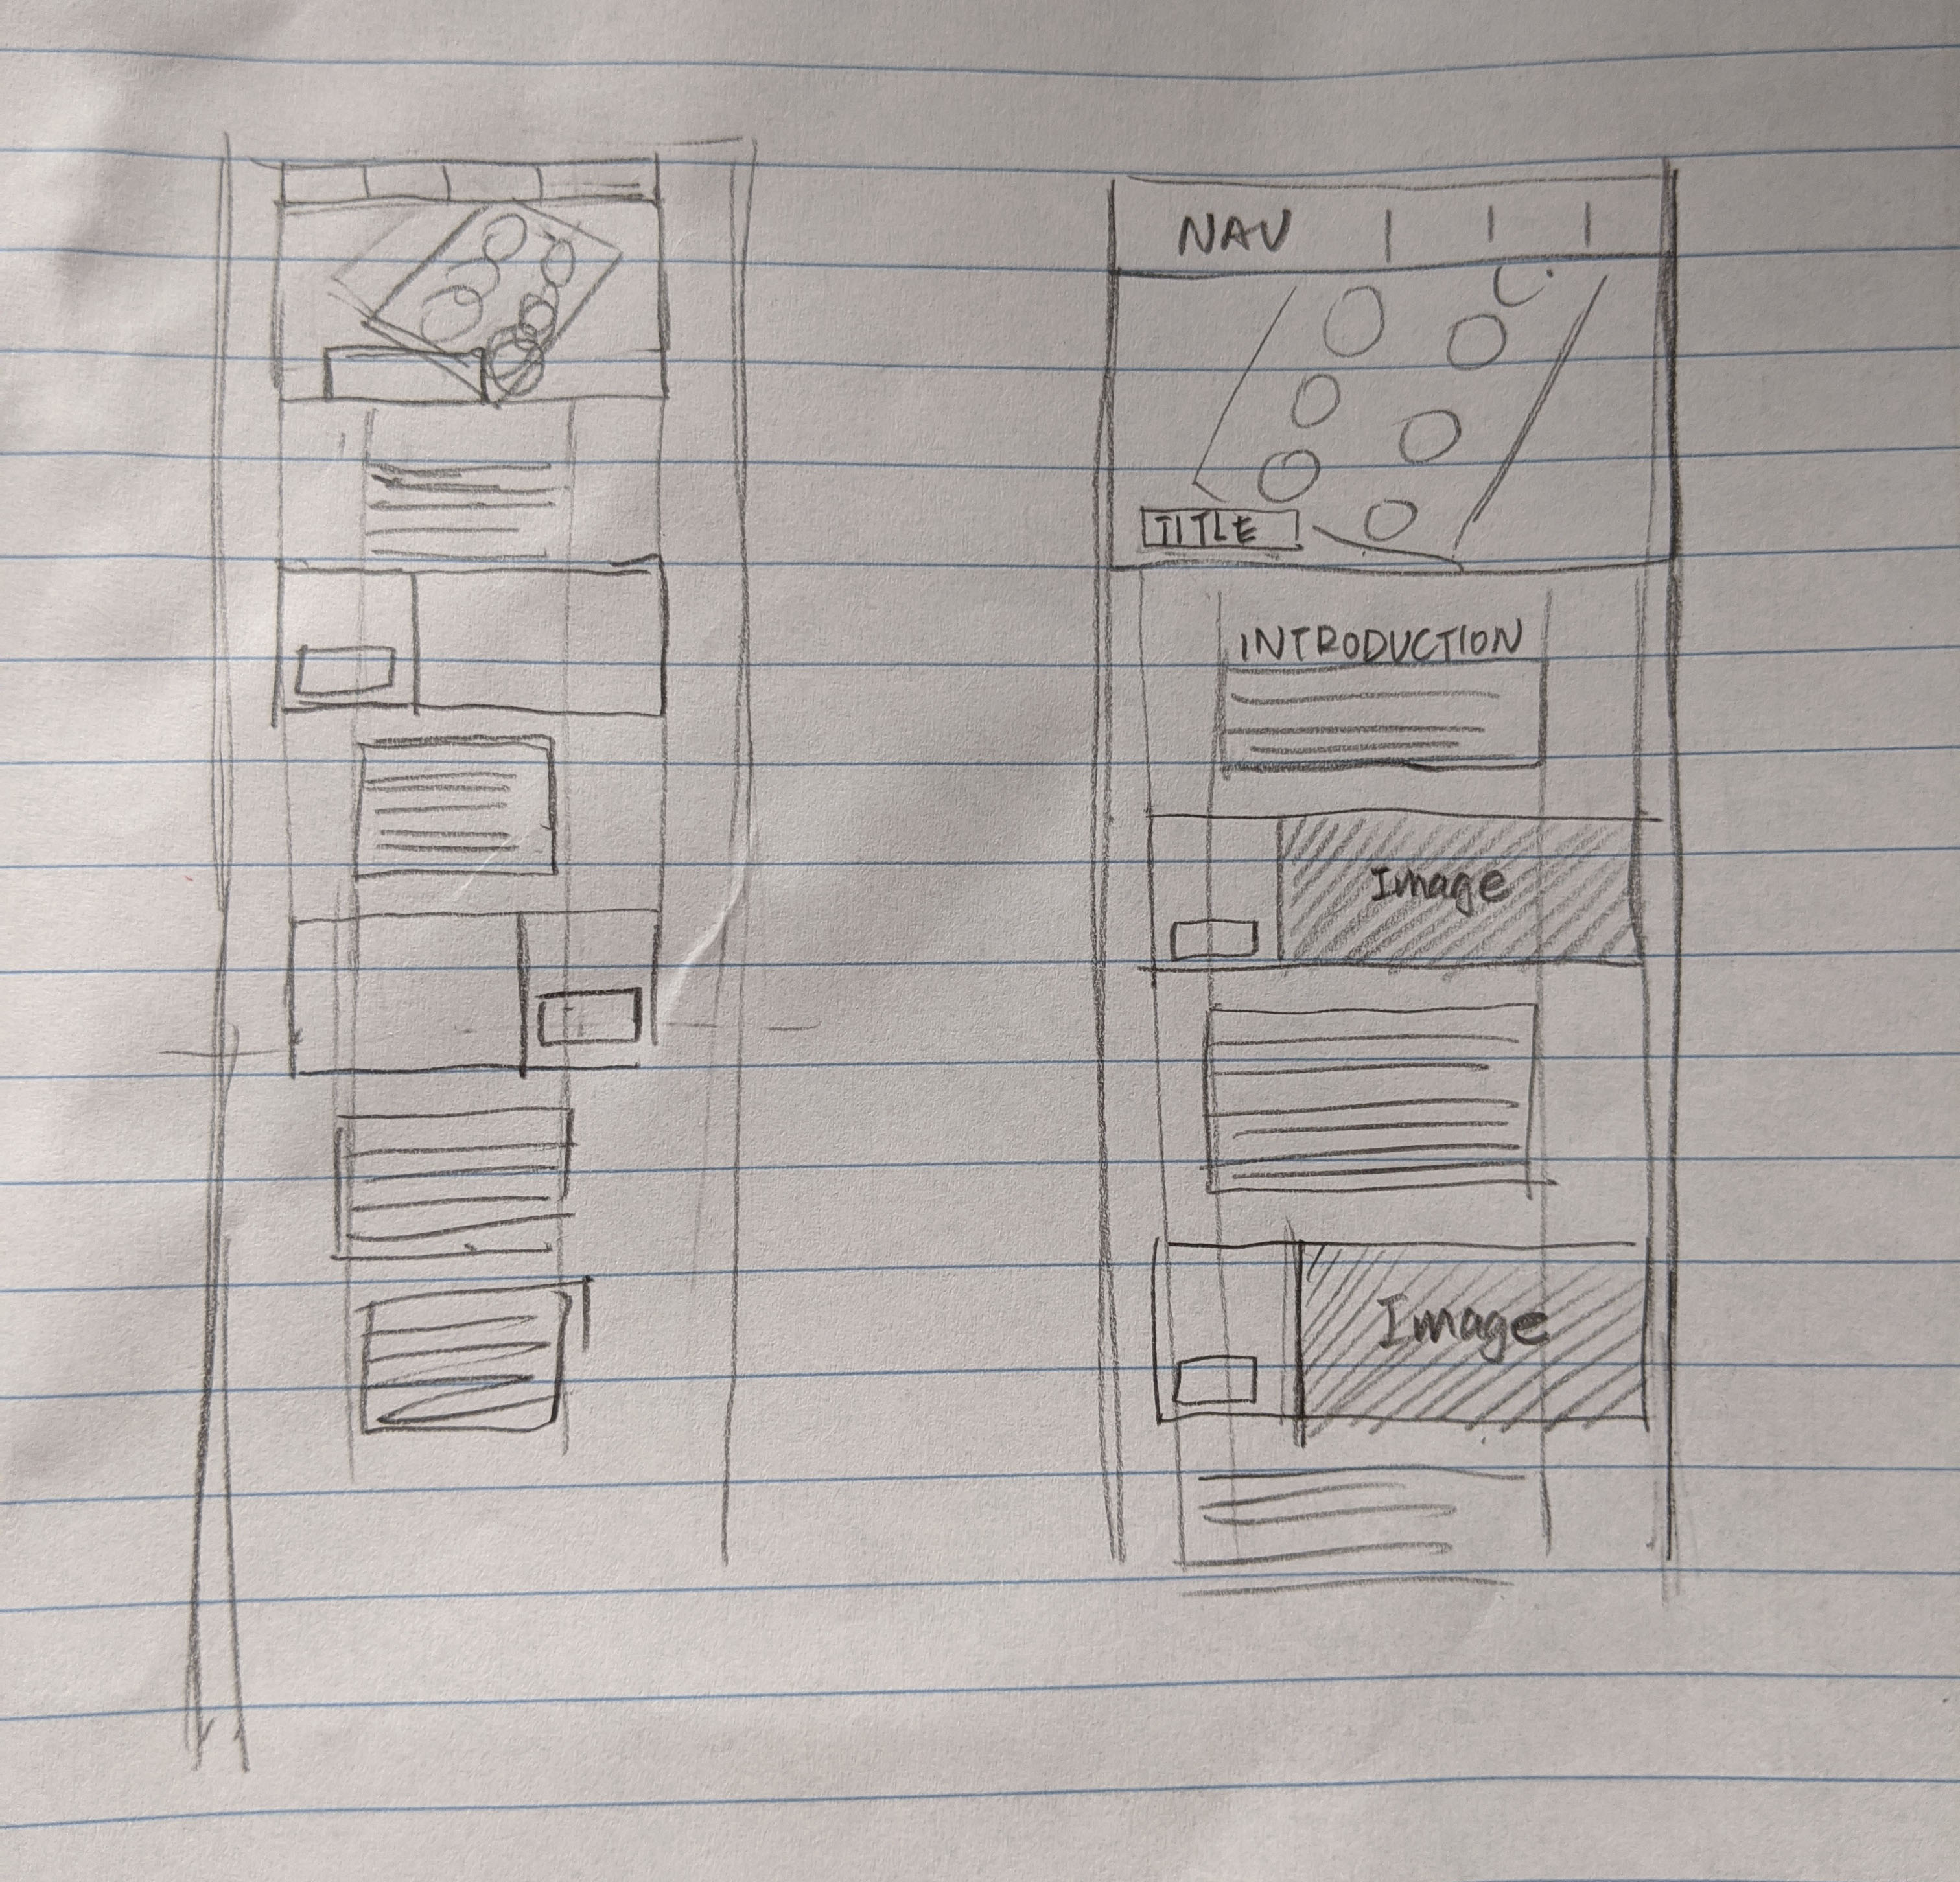 NAV
TITLE
INTRODUCTION
Image
Image